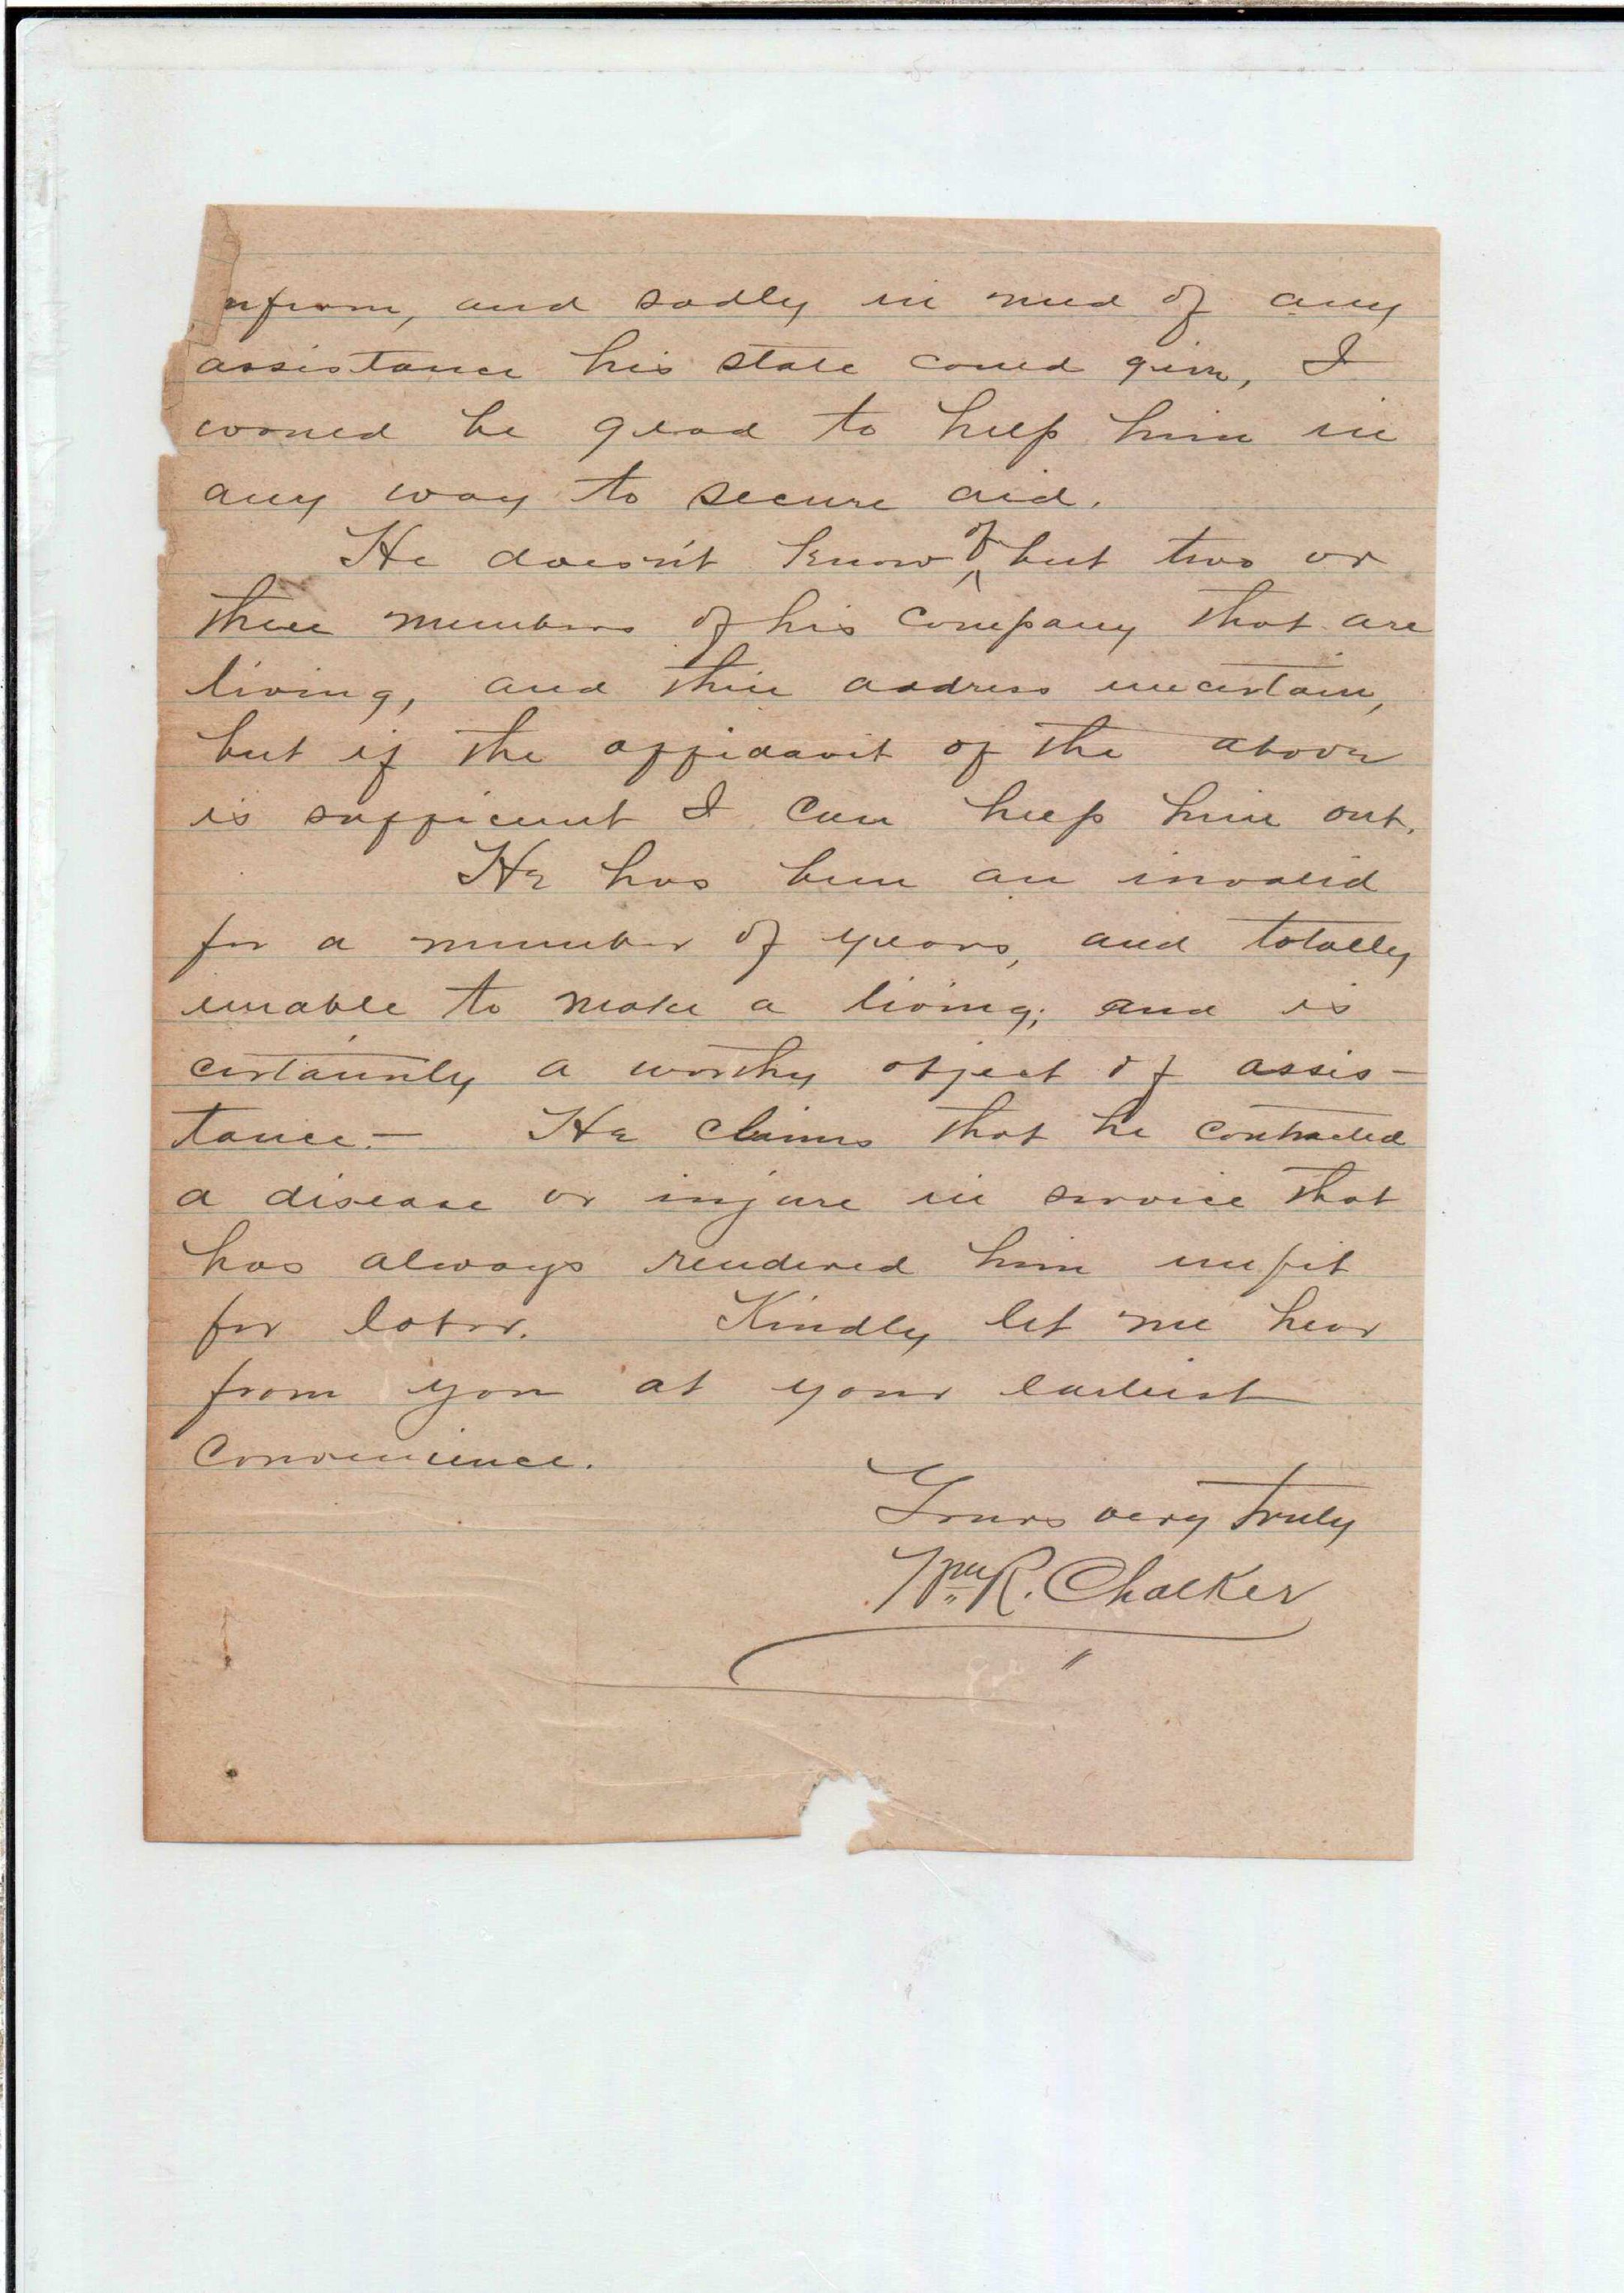 nfirm, and sadly in need of any
assistance his state could give, I
would be glad to help him in
any way to secure aid.
He doesn't know of but two or
three members of his company that are
living, and their address uncertain,
but if the affidavit of the above
is sufficient I can help him out.
He has been an invalid
for a number of years, and totally
unable to make a living; and is
certainly a worthy object of assis-
tance.— He claims that he contracted
a disease or injure in service that
has always rendered him unfit
for labor. Kindly let me hear
from you at your earliest
convenience.
Yours very truly
Wm R. Chalker